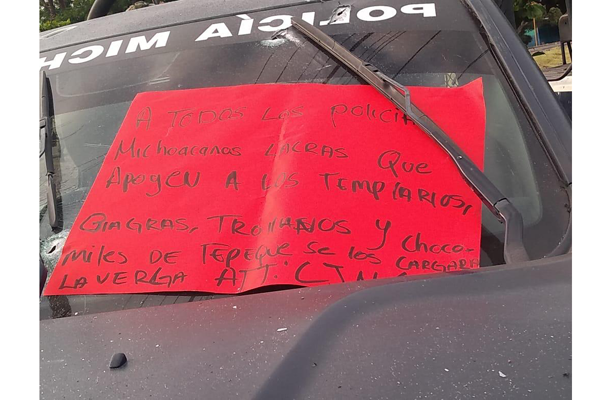 POLICÍA MICH
A TODOS LOS POLICIA
MICHOACANOS LACRAS QUE
APOYEN A LOS TEMPLARIOS,
GIAGRAS, TROYANOS Y CHOCO-
MILES DE TEPEQUE SE LOS CARGARA
LA VERGA ATT: CJN